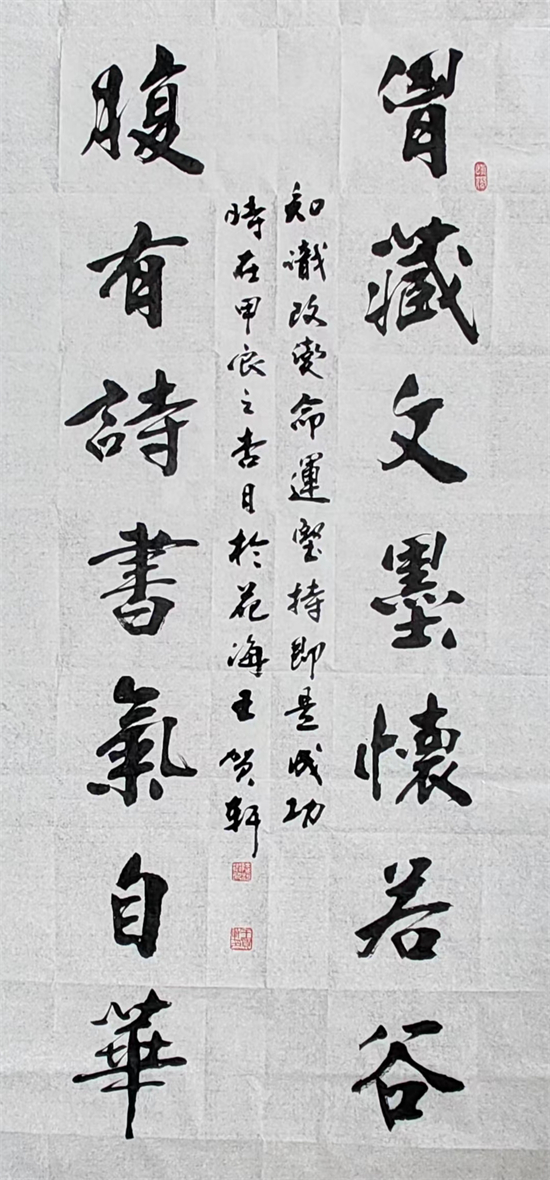 胷藏文墨懷若谷
腹有詩書氣自華
知識改變命運堅持即是成功
時在甲辰之杏月於花海王賀軒